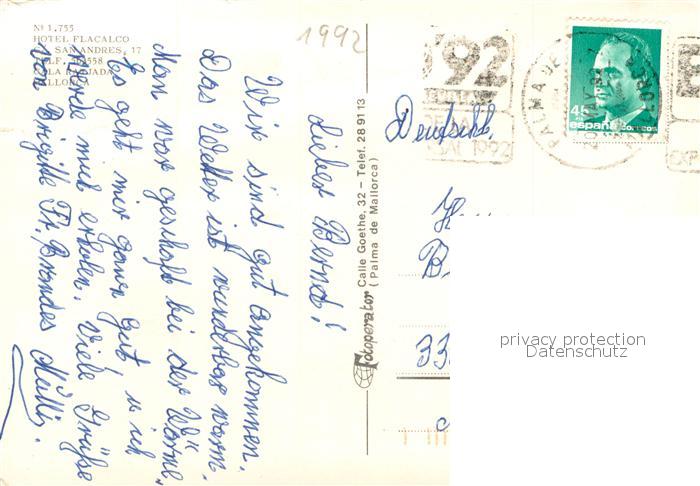 Nº 1.755
HOTEL FLACALCO
SAN ANDRES, 17
TELF. 563558
CALA RATJADA
MALLORCA
1992
Lieber Bernd!
Wir sind gut angekommen.
Das Wetter ist wunderbar warm.
Man war geschafft bei der Wärme.
Es geht mir ganz gut u. ich
werde mich erholen. Viele Grüße
von Brigitte Fr. Brandes Mutti.
Fotoperator Calle Goethe, 32 – Telef. 28 91 13
(Palma de Mallorca)
'92
1992
PALMA DE
45
españa correos
Deutschl.
H
B
33
privacy protection
Datenschutz